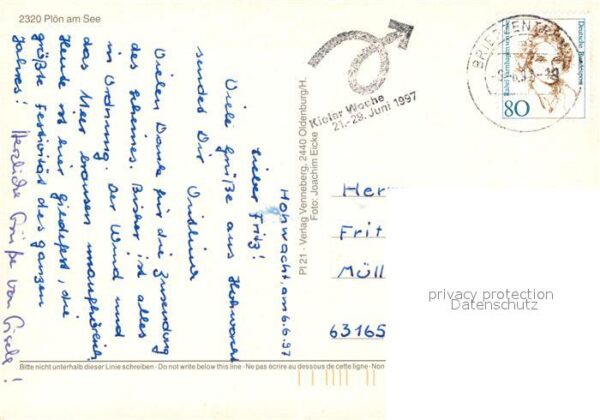 2320 Plön am See
Hohwacht, am 6.6.97
Lieber Fritz!
Viele Grüße aus Hohwacht
sendet Dir
Vielen Dank für die Zusendung
des Bisher ist alles
in Ordnung. Der Wind und
das Meer brausen unaufhörlich.
Heute ist hier Gildefest, die
größte Festivität des ganzen
Jahres! Herzliche Grüße von Gisela!
Kieler Woche
21.-29. Juni 1997
BRIEFZENTR
Deutsche Bundespost
80
Pl 21 - Verlag Venneberg, 2440 Oldenburg/H.
Foto: Joachim Eicke
Her
Frit
Müll
63165
privacy protection
Datenschutz
Bitte nicht unterhalb dieser Linie schreiben · Do not write below this line · Ne pas écrire au dessous de cette ligne · Non